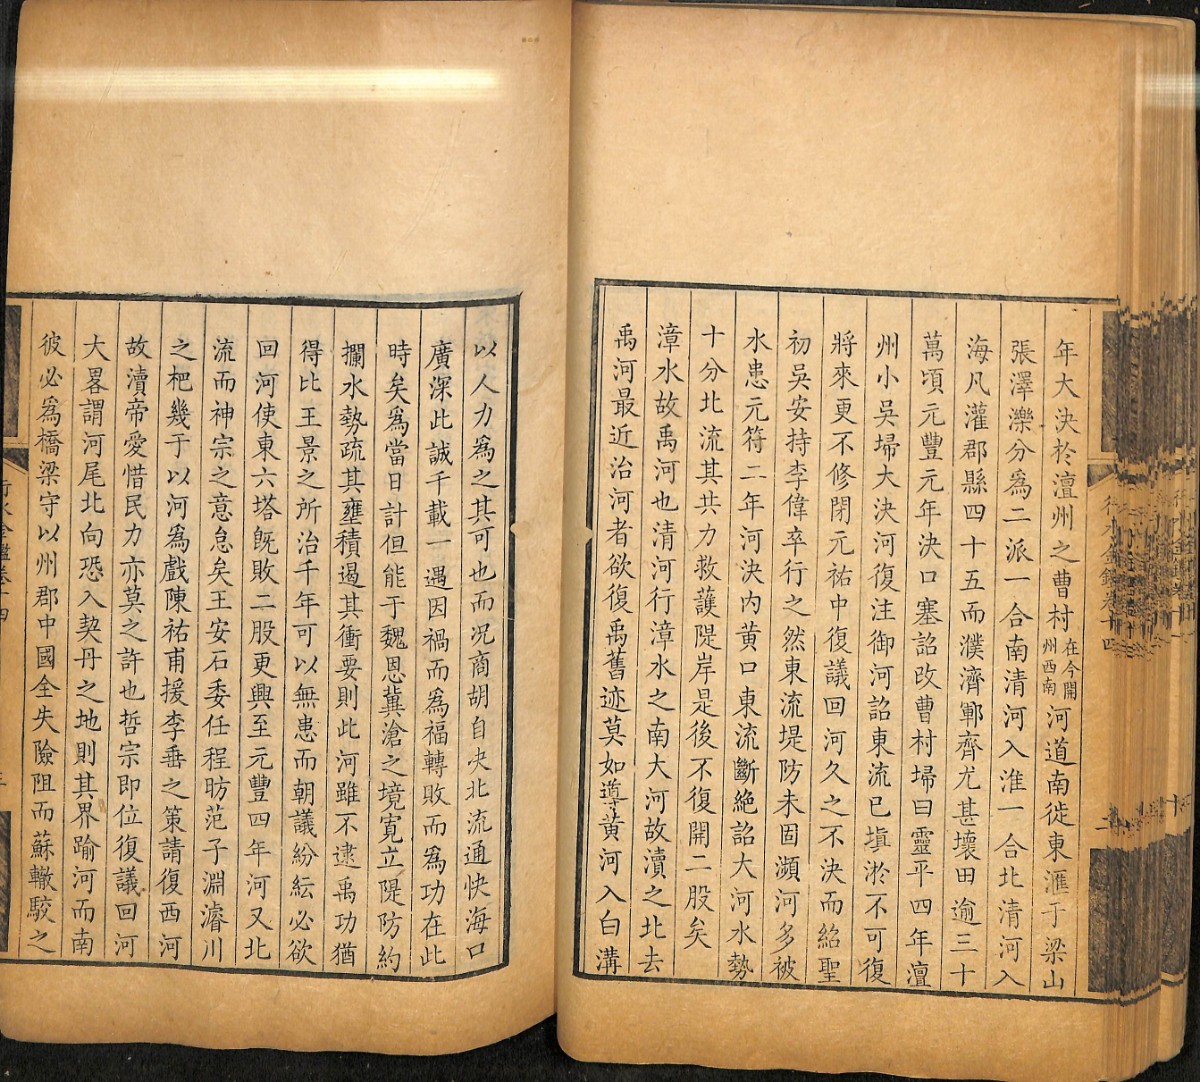 年大決於澶州之曹村在今開州西南河道南徙東滙于梁山
張澤濼分爲二派一合南清河入淮一合北清河入
海凡灌郡縣四十五而濮濟鄆齊尤甚壞田逾三十
萬頃元豐元年決口塞詔改曹村埽曰靈平四年澶
州小吳埽大決河復注御河詔東流已塡淤不可復
將來更不修閉元祐中復議回河久之不決而紹聖
初吳安持李偉卒行之然東流堤防未固瀕河多被
水患元符二年河決內黃口東流斷絕詔大河水勢
十分北流其共力救護隄岸是後不復開二股矣
漳水故禹河也清河行漳水之南大河故瀆之北去
禹河最近治河者欲復禹舊迹莫如導黃河入白溝
行水金鑑卷十四
以人力爲之其可也而况商胡自決北流通快海口
廣深此誠千載一遇因禍而爲福轉敗而爲功在此
時矣爲當日計但能于魏恩冀滄之境寛立隄防約
攔水勢疏其壅積遏其衝要則此河雖不逮禹功猶
得比王景之所治千年可以無患而朝議紛紜必欲
回河使東六塔旣敗二股更興至元豐四年河又北
流而神宗之意怠矣王安石委任程昉范子淵濬川
之杷幾于以河爲戲陳祐甫援李垂之策請復西河
故瀆帝愛惜民力亦莫之許也哲宗即位復議回河
大畧謂河尾北向恐入契丹之地則其界踰河而南
彼必爲橋梁守以州郡中國全失險阻而蘇轍駮之
行水金鑑卷十四